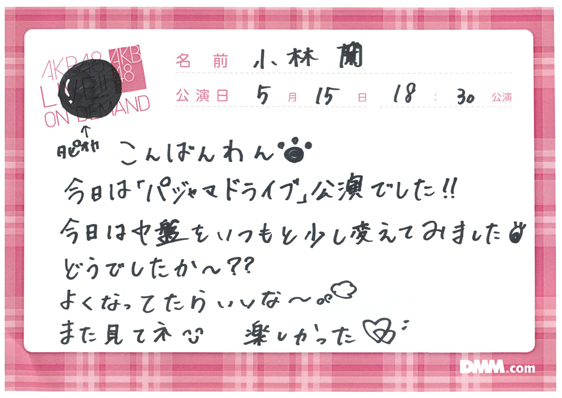 AKB48 AKB48
LIVE!! ON DEMAND
名前 小林 蘭
公演日 5月 15日 18:30 公演
↑
タピオカ
こんばんわん
今日は「パジャマドライブ」公演でした!!
今日は中盤をいつもと少し変えてみました
どうでしたか〜??
よくなってたらいいな〜
また見てネ 楽しかった
DMM.com